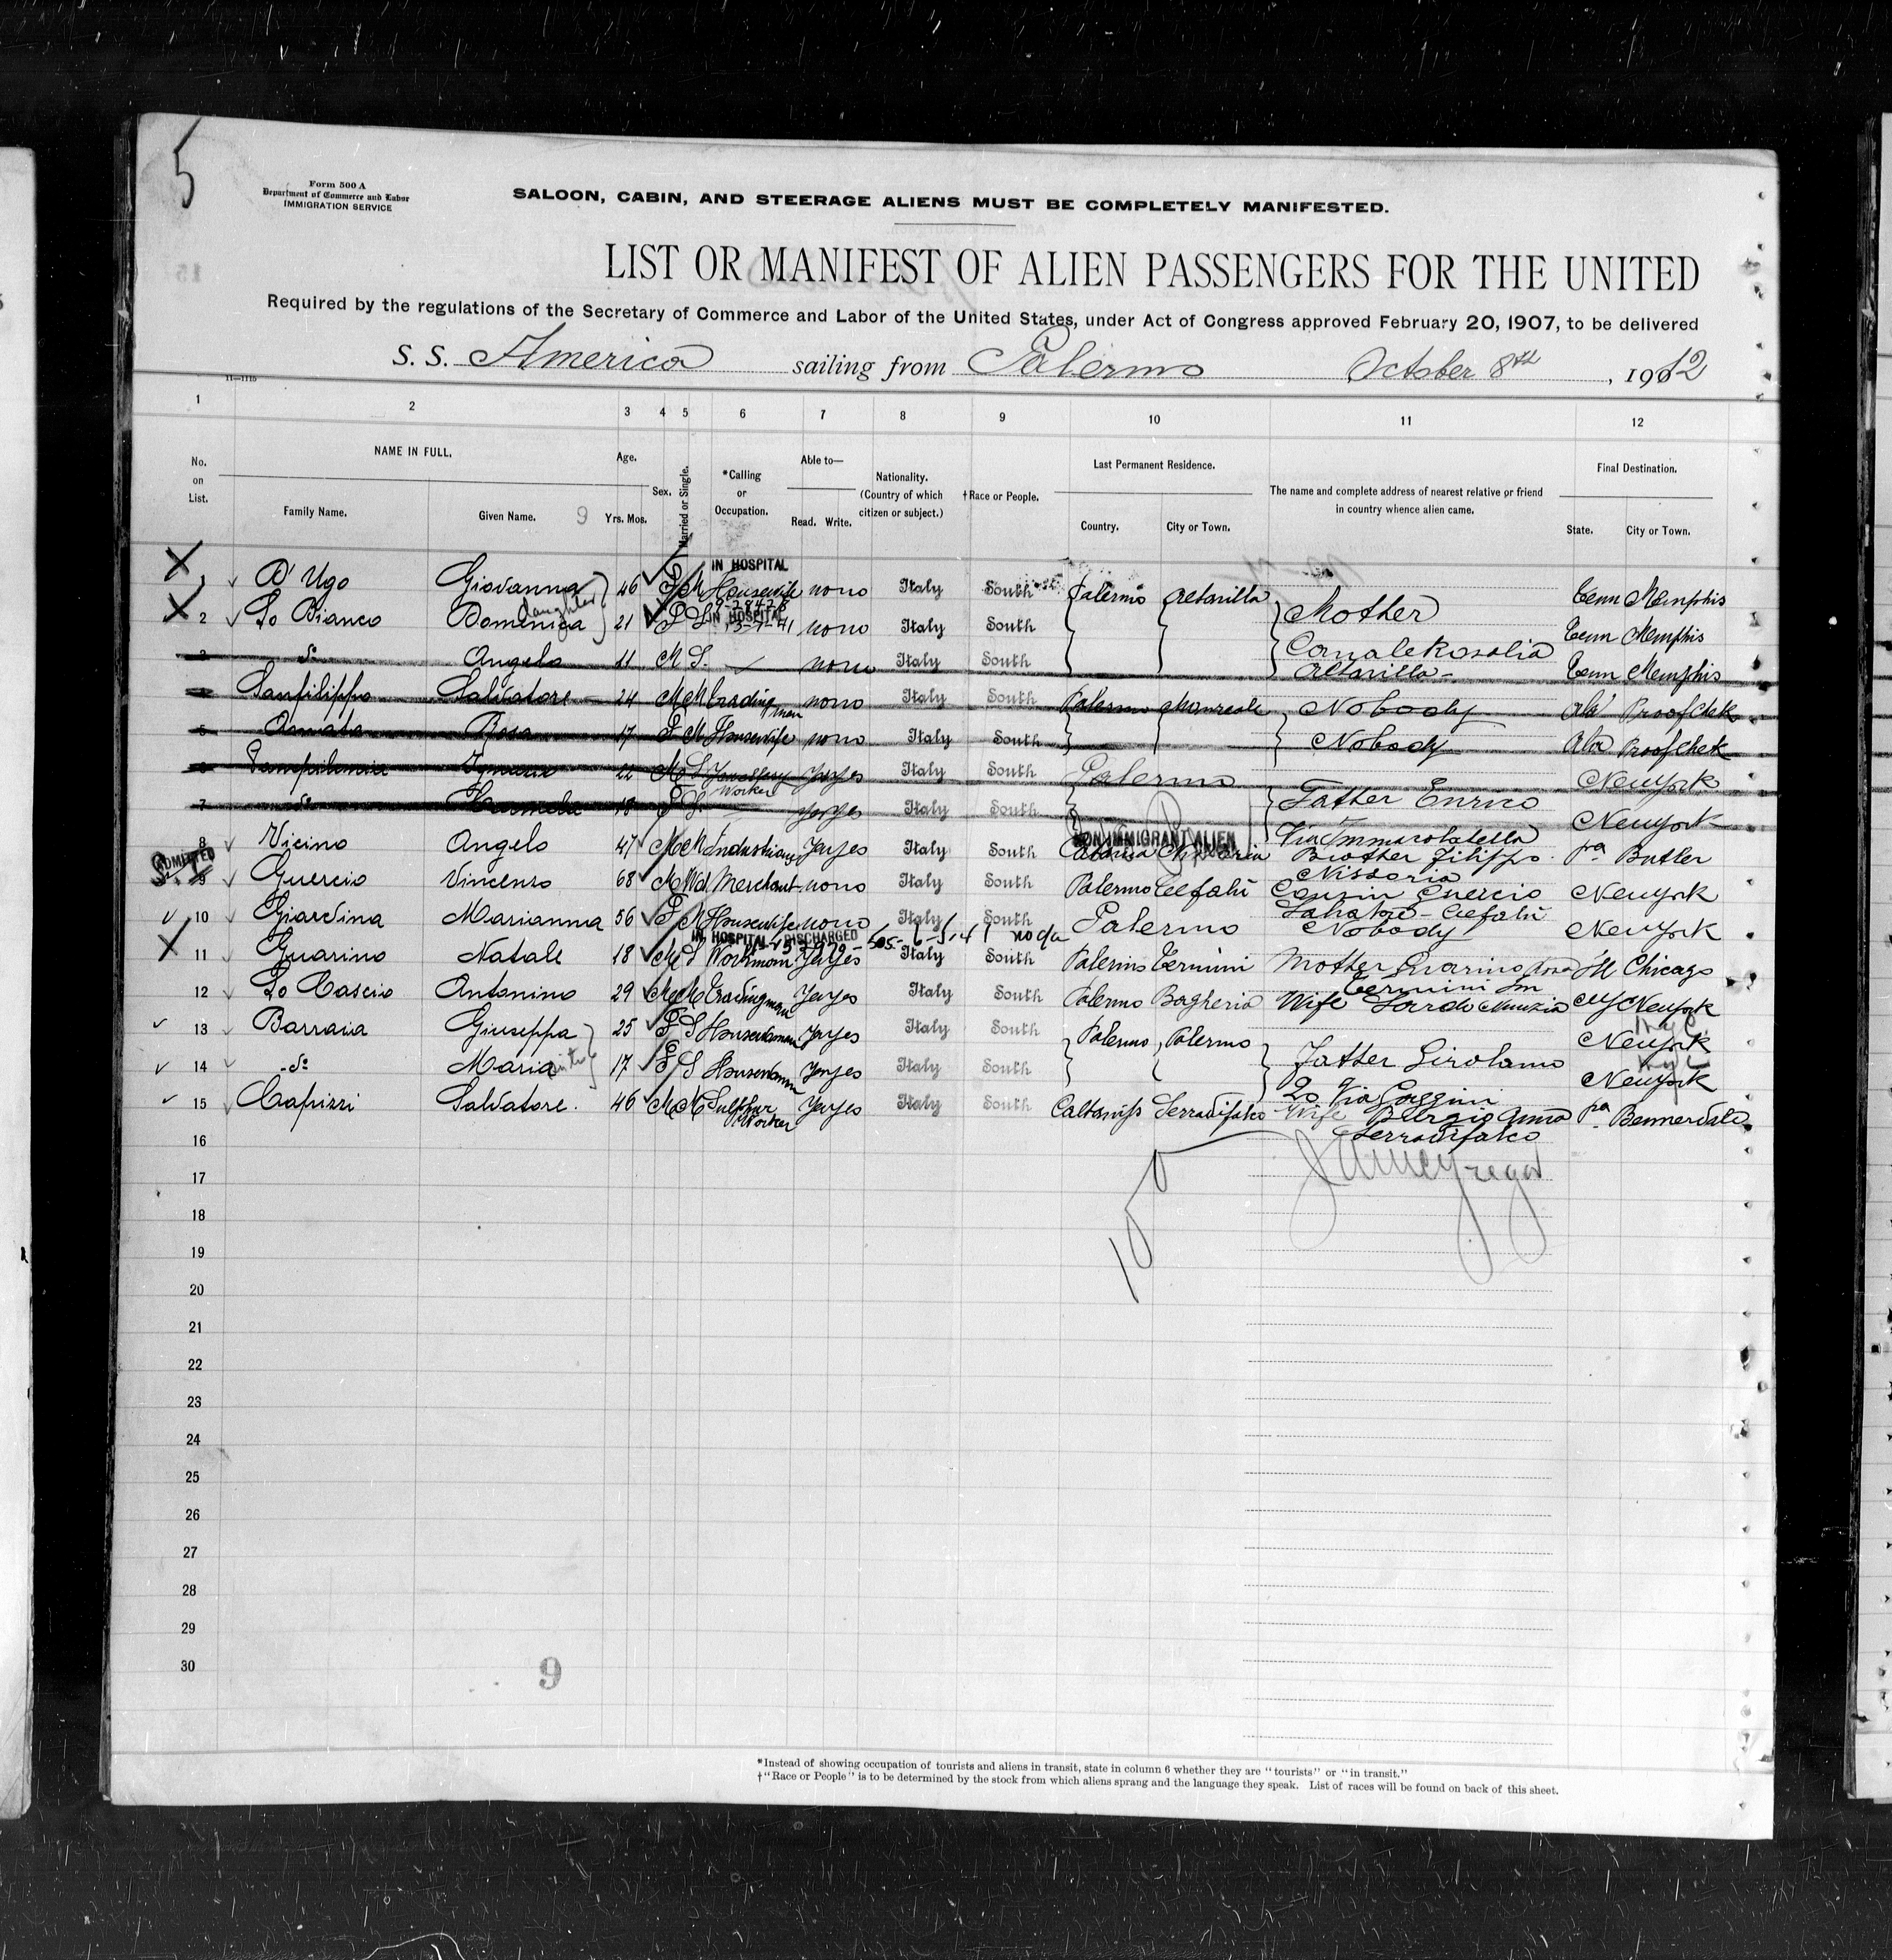 5
Form 500 A
Department of Commerce and Labor
IMMIGRATION SERVICE
SALOON, CABIN, AND STEERAGE ALIENS MUST BE COMPLETELY MANIFESTED.
LIST OR MANIFEST OF ALIEN PASSENGERS FOR THE UNITED
Required by the regulations of the Secretary of Commerce and Labor of the United States, under Act of Congress approved February 20, 1907, to be delivered
S. S. America sailing from Palermo October 8th, 1912
11—1115
1 2 3 4 5 6 7 8 9 10 11 12
No. on List.
NAME IN FULL.
Family Name. Given Name. 9
Age.
Yrs. Mos.
Sex.
Married or Single.
*Calling or Occupation.
Able to—
Read. Write.
Nationality. (Country of which citizen or subject.)
†Race or People.
Last Permanent Residence.
Country. City or Town.
The name and complete address of nearest relative or friend in country whence alien came.
Final Destination.
State. City or Town.
IN HOSPITAL
1 D'Ugo Giovanna 46 F M Housewife no no Italy South Palermo Altavilla Tenn Memphis
daughter
IN HOSPITAL
2 Lo Bianco Domenica 21 F S no no Italy South Mother Tenn Memphis
3 Do Angelo 11 M S. no no Italy South Canale Rosalia Tenn Memphis
Altavilla
4 Sanfilippo Salvatore 24 M M Trading man no no Italy South Palermo Monreale Nobody Ala
5 Rosa 17 F M Housewife no no Italy South Nobody Ala
6 22 M S Jewellery Worker Yes yes Italy South Palermo New york
7 Do 18 F S. Yes yes Italy South Father Enrico New york
Via Immacolatella
NON IMMIGRANT ALIEN
8 Vicino Angelo 47 M M Yes yes Italy South Brother Filippo Pa Butler
Nissoria
ADMITTED
9 Guercio Vincenzo 68 M Wd. Merchant no no Italy South Palermo Cefalù Cousin Guercio New york
Salvatore - Cefalù
10 Giardina Marianna 56 F M Housewife no no Italy South Palermo Nobody New York
IN HOSPITAL DISCHARGED
11 Guarino Natale 18 M S Workman Yes yes Italy South Palermo Termini Mother Guarino Rosa Ill Chicago
Termini Im
12 Lo Cascio Antonino 29 M M Tradingman Yes yes Italy South Palermo Bagheria Wife Sardo Nunzia NY New york
13 Barraia Giuseppa 25 F S Housewoman Yes yes Italy South Palermo Palermo New york
14 Do Maria sister 17 F S Housewoman Yes yes Italy South Father Girolamo New york
20 Via Gazzini
15 Capizzi Salvatore. 46 M M Sulphur Worker Yes yes Italy South Caltaniss Serradifalco Wife Anna Pa
Serradifalco
16
17
18
19
20
21
22
23
24
25
26
27
28
29
30
9
*Instead of showing occupation of tourists and aliens in transit, state in column 6 whether they are "tourists" or "in transit."
†"Race or People" is to be determined by the stock from which aliens sprang and the language they speak. List of races will be found on back of this sheet.